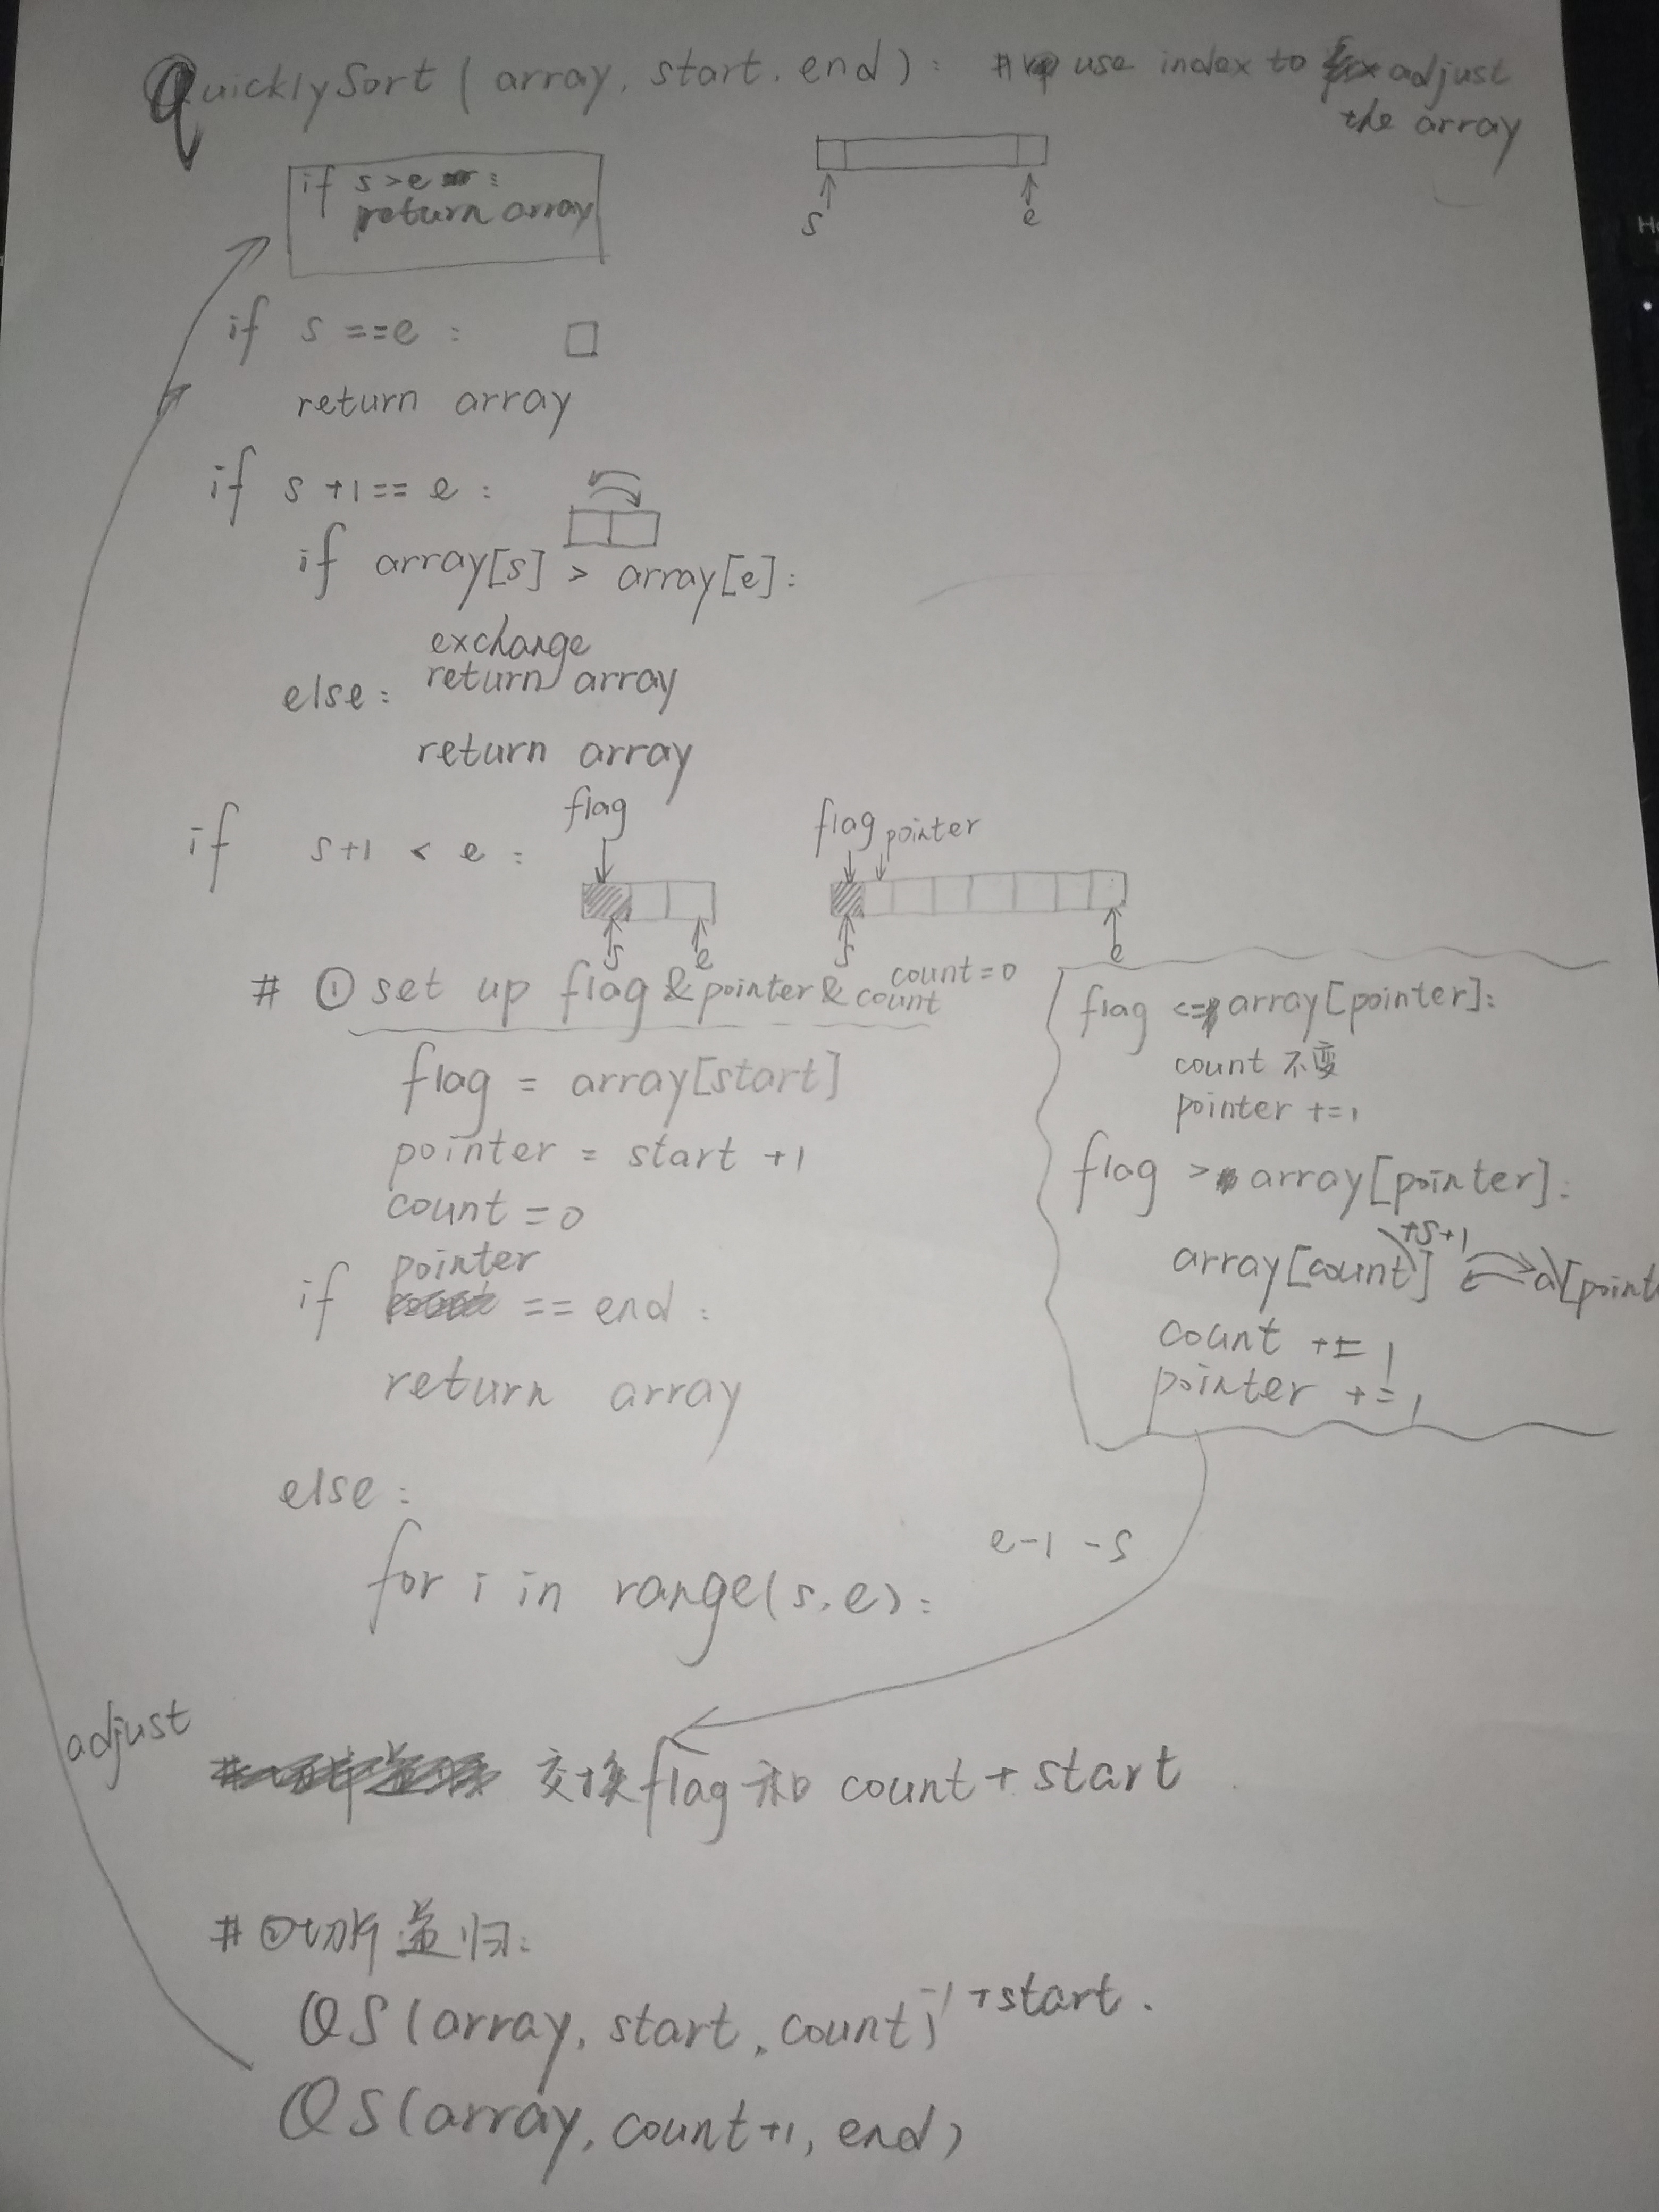 QuicklySort ( array, start, end ) : # use index to adjust
the array
if s>e :
return array
s
e
if s ==e :
return array
if s +1== e :
if array[s] > array[e]:
exchange
return array
else:
return array
flag
flag pointer
if s+1 < e :
s e
s e
# ① set up flag & pointer & count
count=0
flag = array[start]
pointer = start +1
count =0
pointer
if == end :
return array
flag <= array[pointer]:
count 不变
pointer +=1
flag > array[pointer]:
+s+1
array[count] a[point
count +=1
pointer +=1
else :
e-1 -s
for i in range(s,e):
adjust
# 交换flag 和 count + start
# ②切片 递归:
QS(array, start, count) -1 +start.
QS(array, count+1, end)